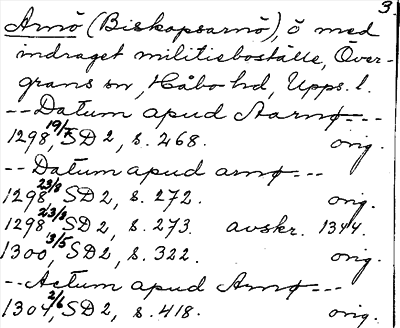 3.
Arnö (Biskopsarnö), ö med
indraget militieboställe, Över-
grans sn, Håbo hd, Upps. l.
-- Datum apud Aarnø ---
1298 19/7, SD 2, s. 268. orig.
-- Datum apud arnø ---
1298 23/8, SD 2, s. 272. orig.
1298 23/8, SD 2, s. 273. avskr. 1344.
1300 3/5, SD2, s. 322. orig.
-- Actum apud Arnø ---
1304 2/6, SD 2, s. 418. orig.